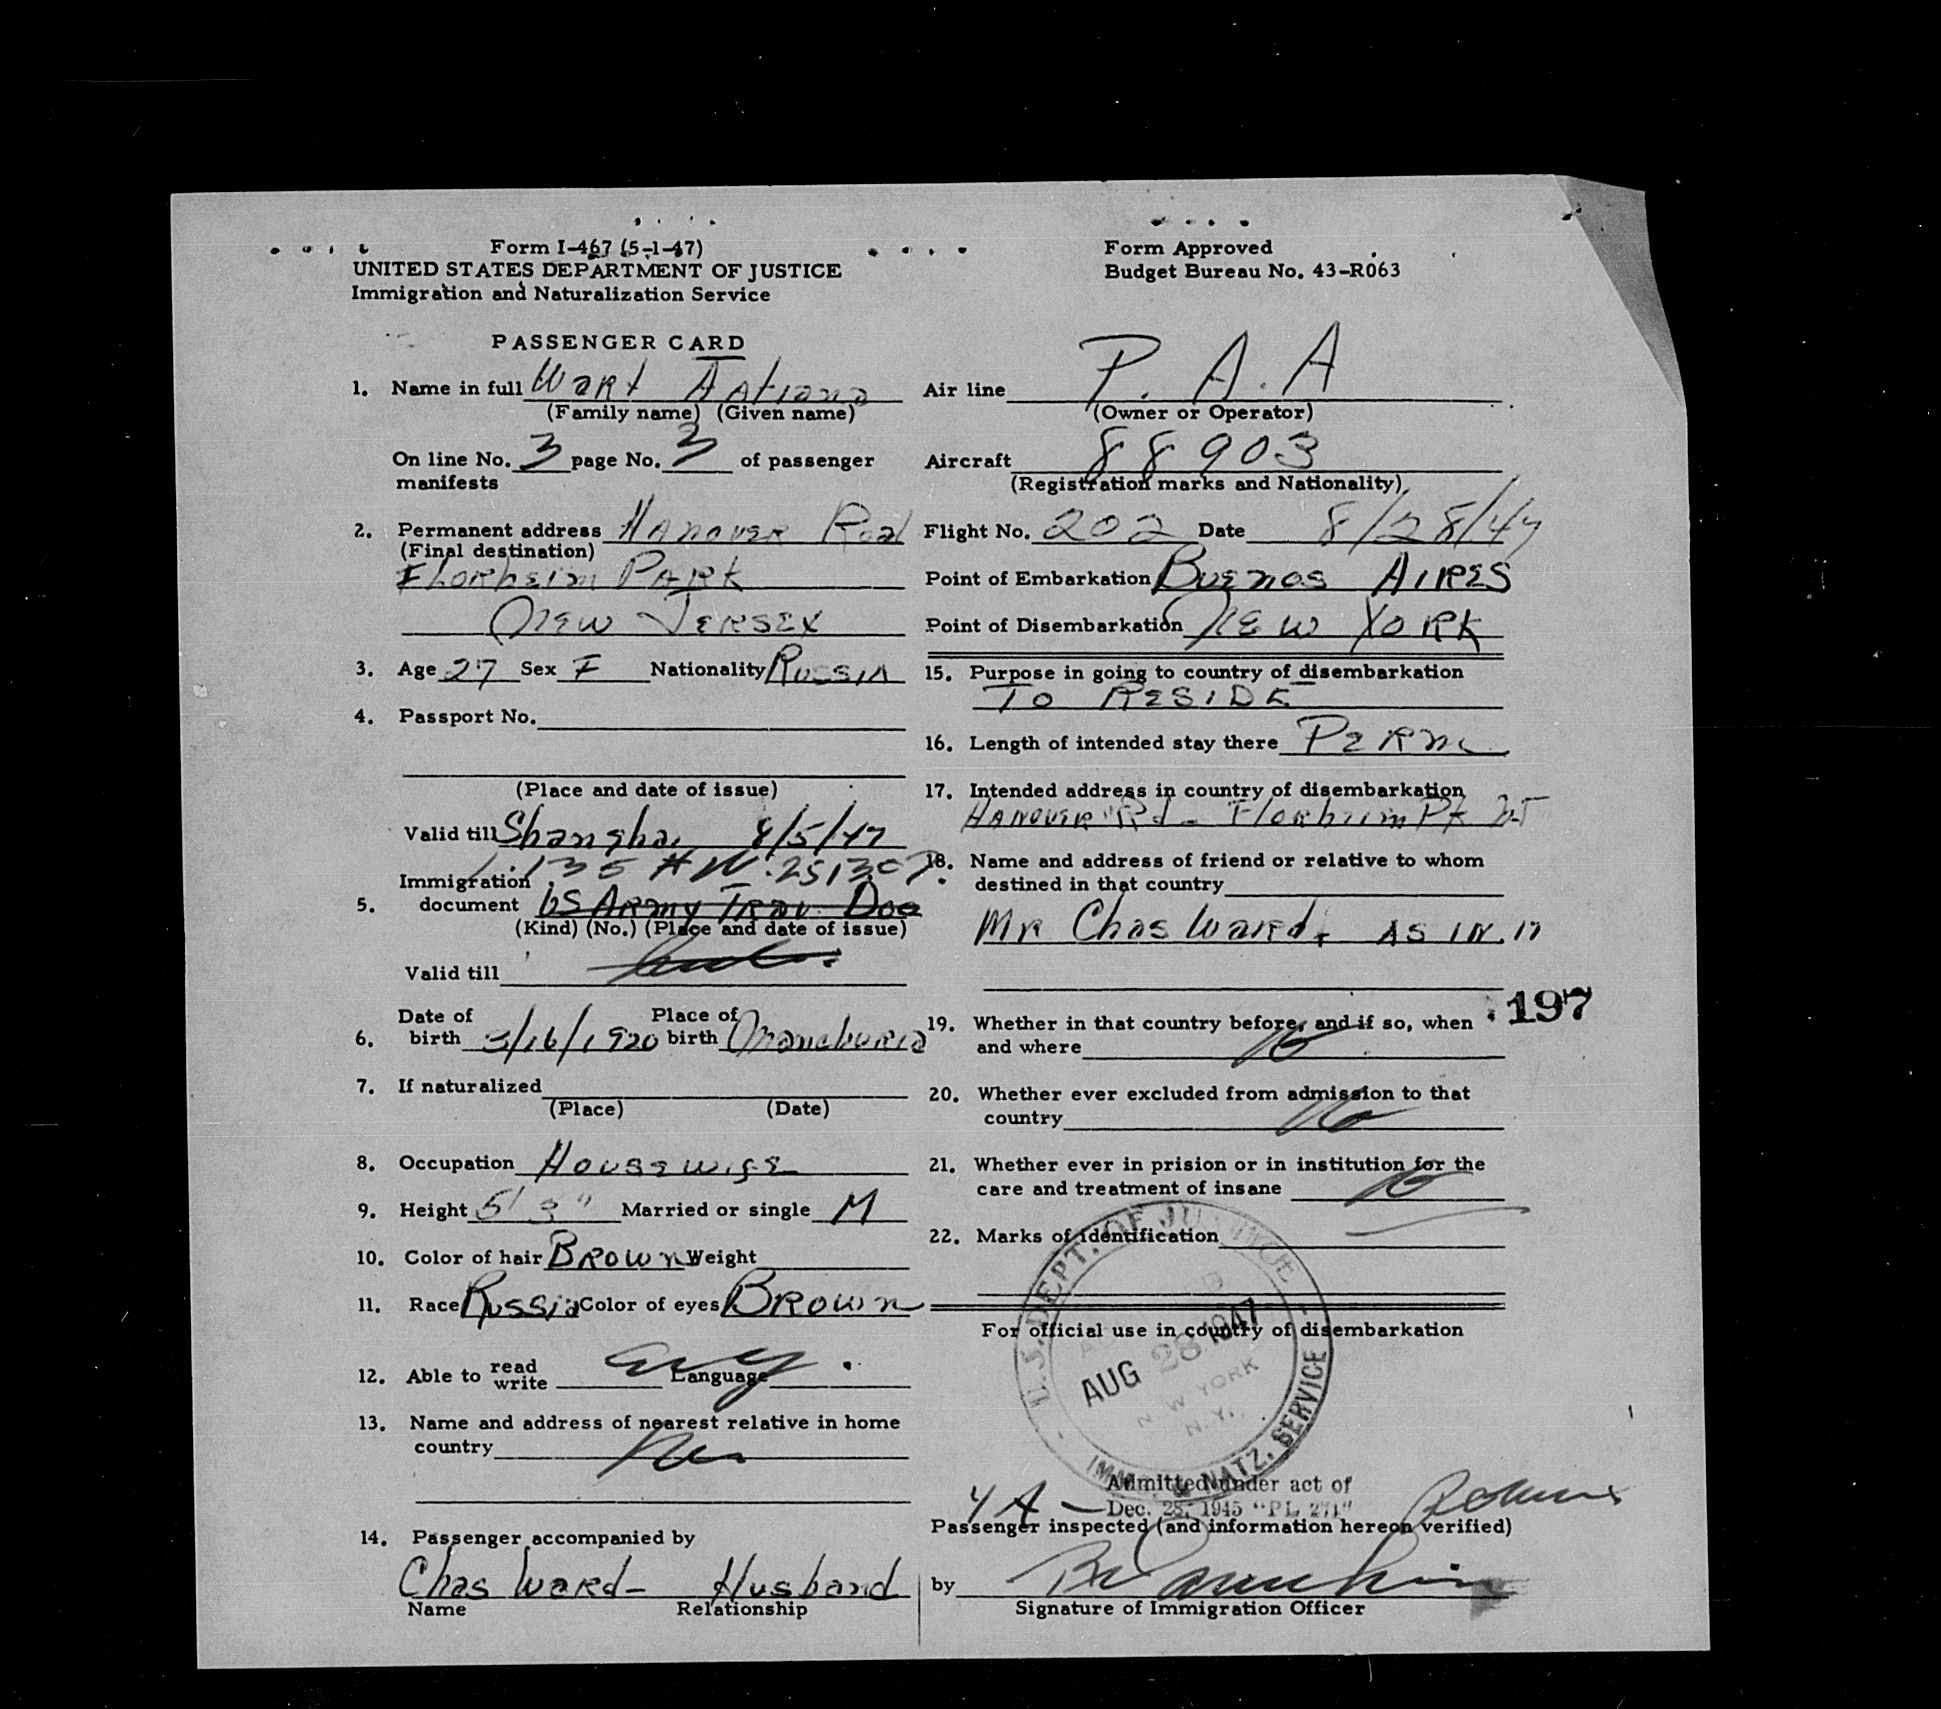 Form I-467 (5-1-47)
UNITED STATES DEPARTMENT OF JUSTICE
Immigration and Naturalization Service
Form Approved
Budget Bureau No. 43-R063
PASSENGER CARD
1. Name in full Wart Tatiana
(Family name) (Given name)
On line No. 3 page No. 3 of passenger
manifests
2. Permanent address Hanover Road
(Final destination)
Florheim Park
New Jersey
3. Age 27 Sex F Nationality Russia
4. Passport No.
(Place and date of issue)
Valid till Shanghai 8/5/47
Immigration
5. document US Army Trav. Doc
(Kind) (No.) (Place and date of issue)
Valid till
Date of Place of
6. birth 3/16/1920 birth Manchuria
7. If naturalized
(Place) (Date)
8. Occupation Housewife
9. Height 5' 3" Married or single M
10. Color of hair Brown Weight
11. Race Russia Color of eyes Brown
12. Able to read write Eng. Language
13. Name and address of nearest relative in home
country
14. Passenger accompanied by
Chas Ward - Husband
Name Relationship
Air line P. A. A
(Owner or Operator)
Aircraft 88903
(Registration marks and Nationality)
Flight No. 202 Date 8/28/47
Point of Embarkation Buenos Aires
Point of Disembarkation New York
15. Purpose in going to country of disembarkation
To Reside
16. Length of intended stay there Perm
17. Intended address in country of disembarkation
Hanover Rd - Florheim Pk NJ
18. Name and address of friend or relative to whom
destined in that country
Mr Chas Ward, AS IN 17
197
19. Whether in that country before, and if so, when
and where No
20. Whether ever excluded from admission to that
country No
21. Whether ever in prision or in institution for the
care and treatment of insane No
22. Marks of identification
For official use in country of disembarkation
U.S. DEPT. OF JUSTICE
AUG 28 1947
NEW YORK
N.Y.
IMM. & NATZ. SERVICE
4A - Admitted under act of
Dec. 28, 1945 "PL 271"
Passenger inspected (and information hereon verified)
by
Signature of Immigration Officer